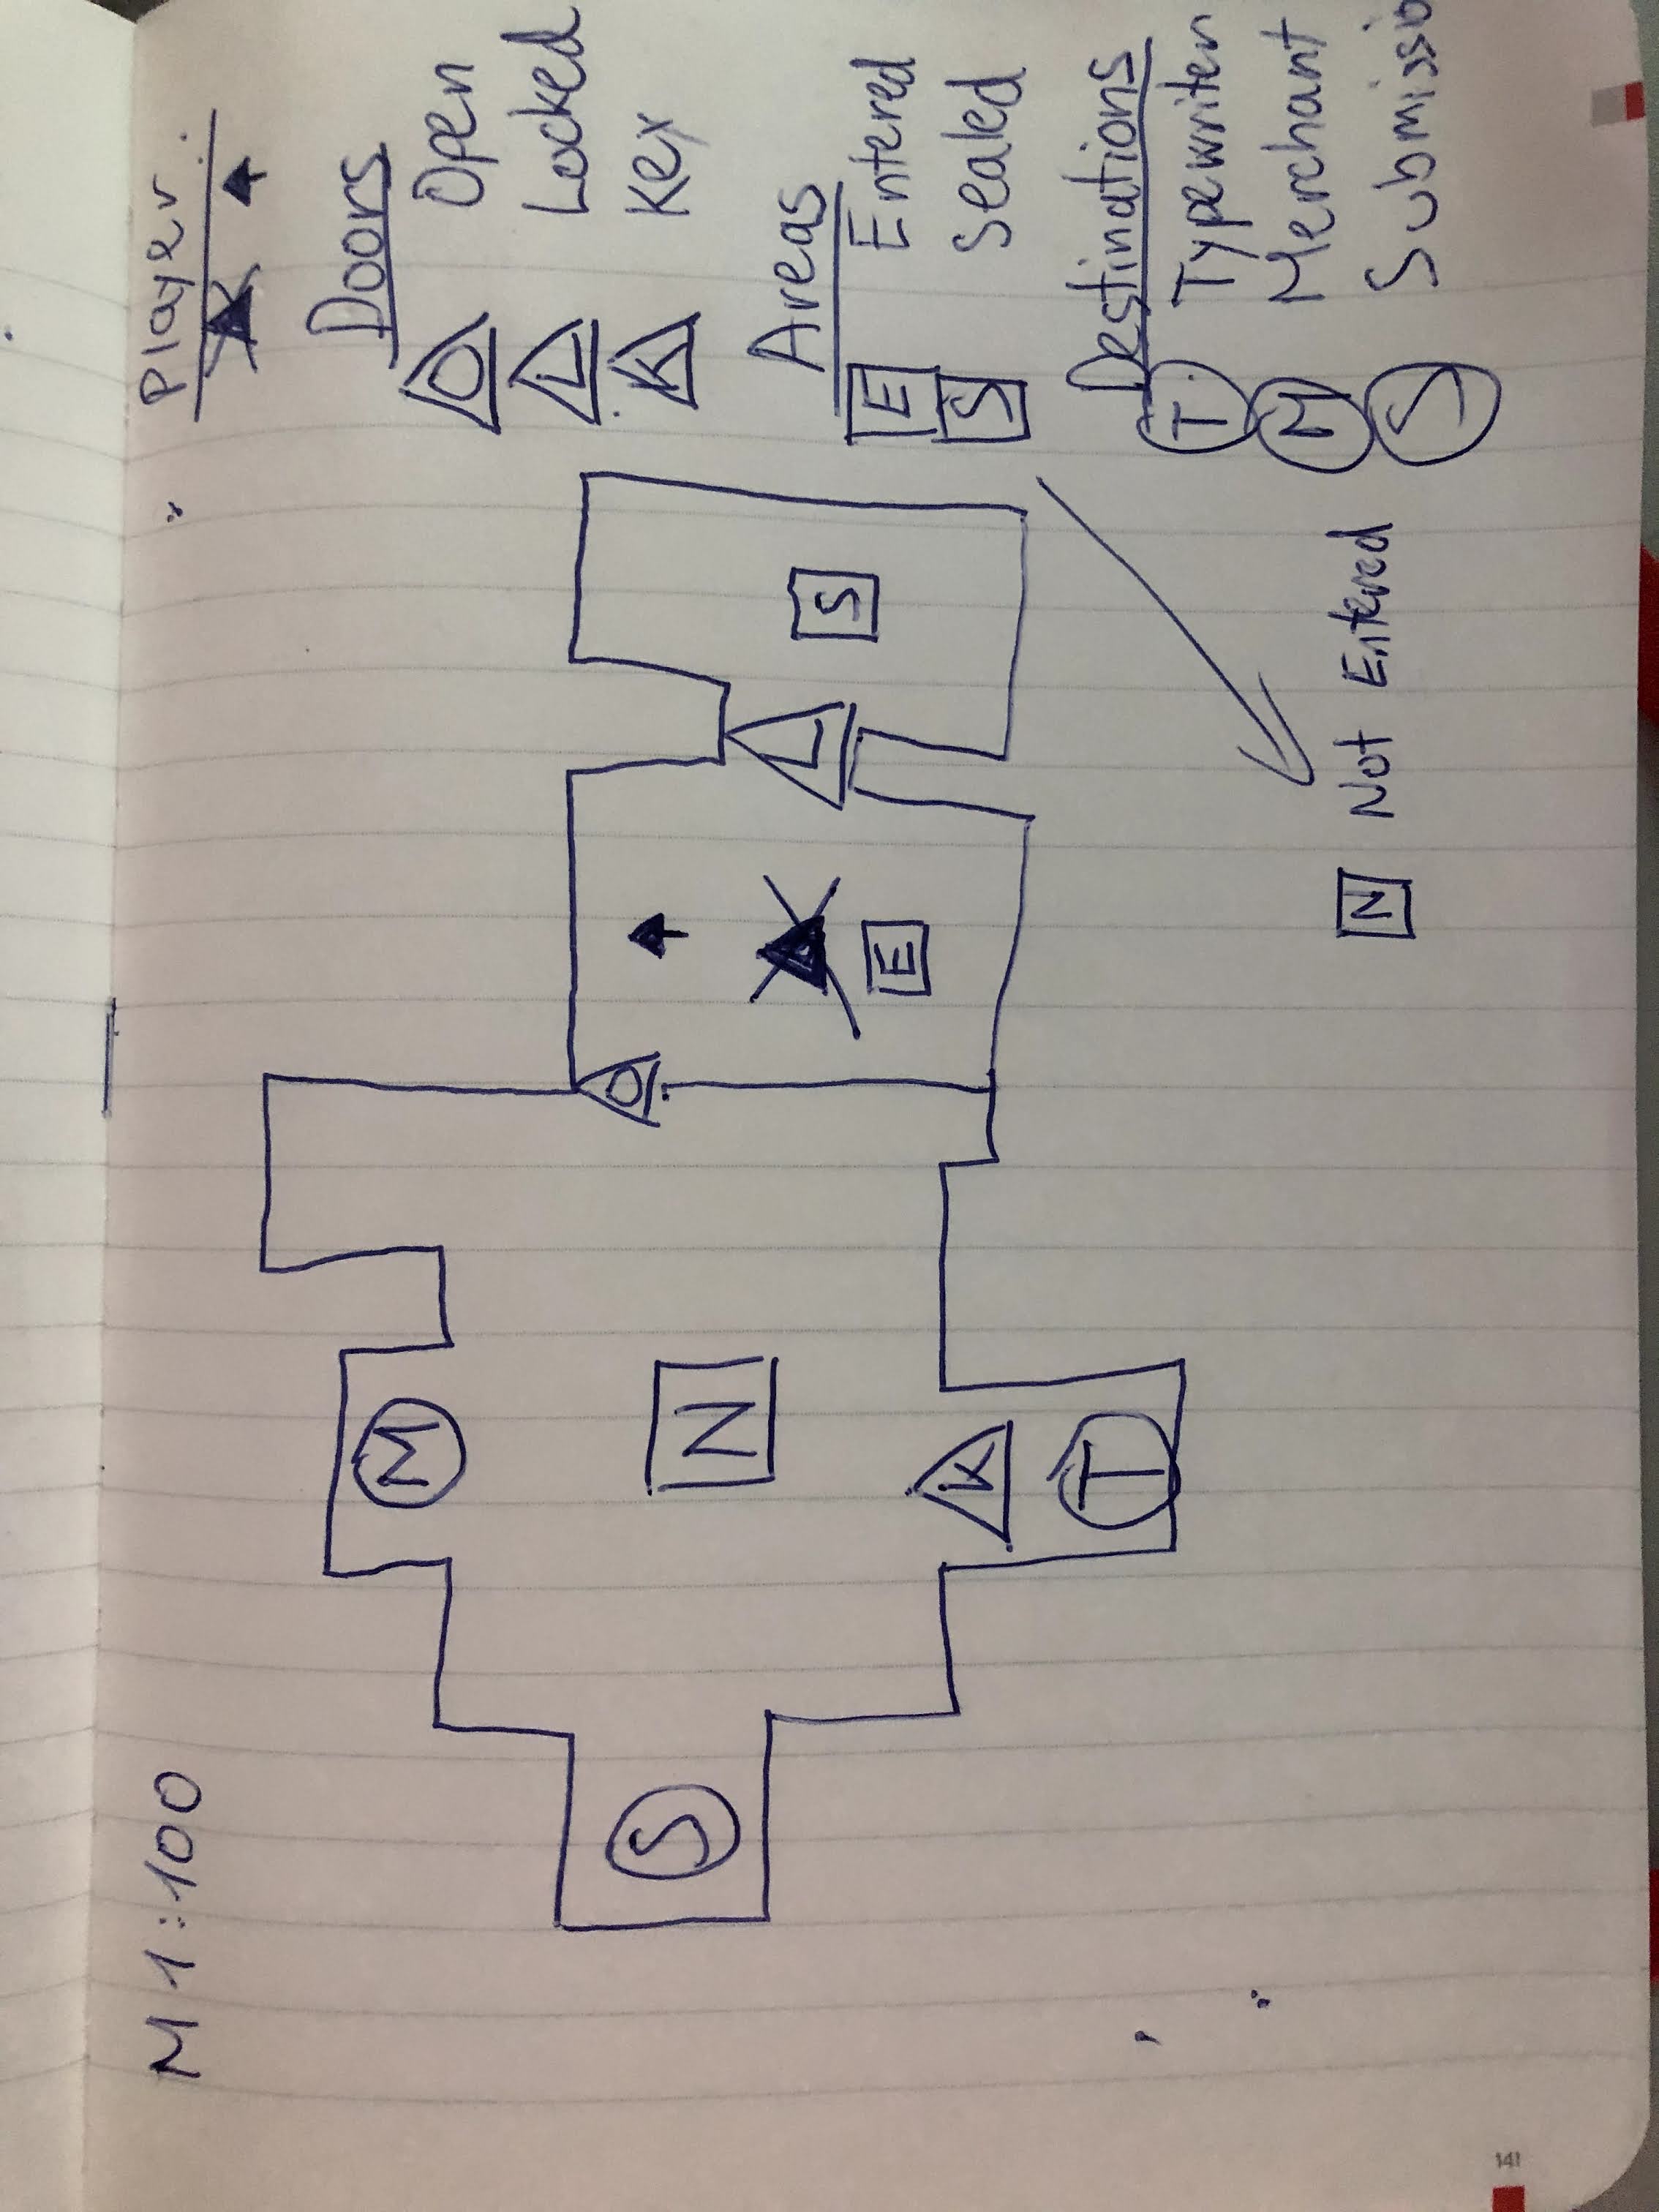 M 1:100
M
O
N
S
L
S
E
K
T
Player
Doors
O Open
L Locked
K Key
Areas
E Entered
S Sealed
Destinations
T Typewriter
M Merchant
S Submissio
N Not Entered
141